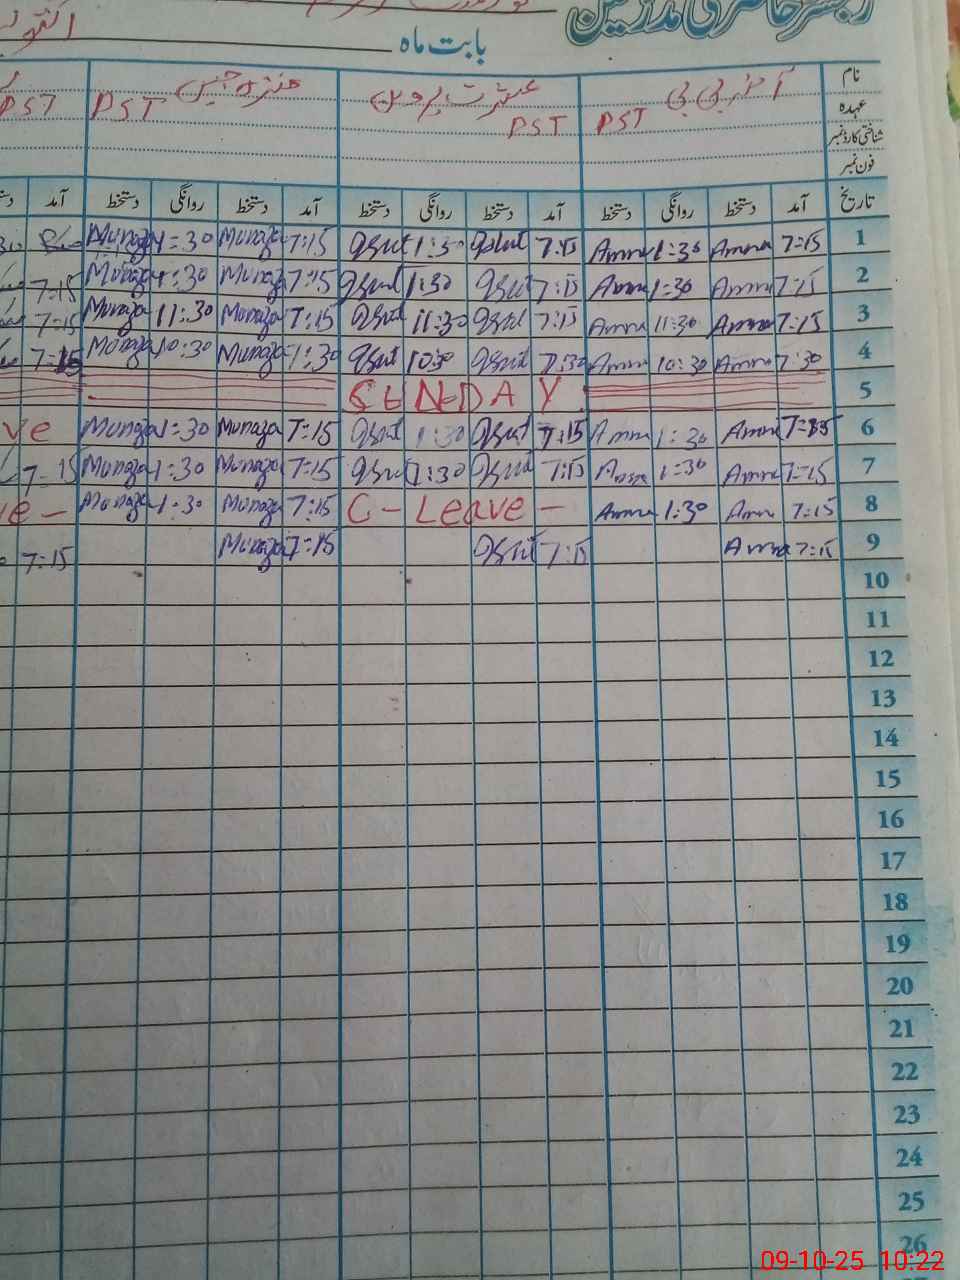 رجسٹر حاضری مدرسین
بابت ماہ
نام آمنہ بی بی عشرت پروین منزہ جبیں
عہدہ PST PST PST PST
شناختی کارڈ نمبر
فون نمبر
تاریخ آمد دستخط روانگی دستخط آمد دستخط روانگی دستخط آمد دستخط روانگی دستخط آمد
1 7:15 Amna 1:30 Amna 7:15 1:30 7:15 Munaza 1:30 Munaza
2 7:15 Amna 1:30 Amna 7:15 1:30 7:15 Munaza 1:30 Munaza 7:15
3 7:15 Amna 11:30 Amna 7:15 11:30 7:15 Munaza 11:30 Munaza 7:15
4 7:30 Amna 10:30 Amna 7:30 10:30 1:30 Munaza 10:30 Munaza 7:15
5 SUNDAY
6 7:15 Amna 1:30 Amna 7:15 1:30 7:15 Munaza 1:30 Munaza ve
7 7:15 Amna 1:30 Amna 7:15 1:30 7:15 Munaza 1:30 Munaza 7:15
8 7:15 Amna 1:30 Amna C-Leave- 7:15 Munaza 1:30 Munaza ve-
9 7:15 Amna 7:15 7:15 Munaza 7:15
10
11
12
13
14
15
16
17
18
19
20
21
22
23
24
25
26
09-10-25 10:22